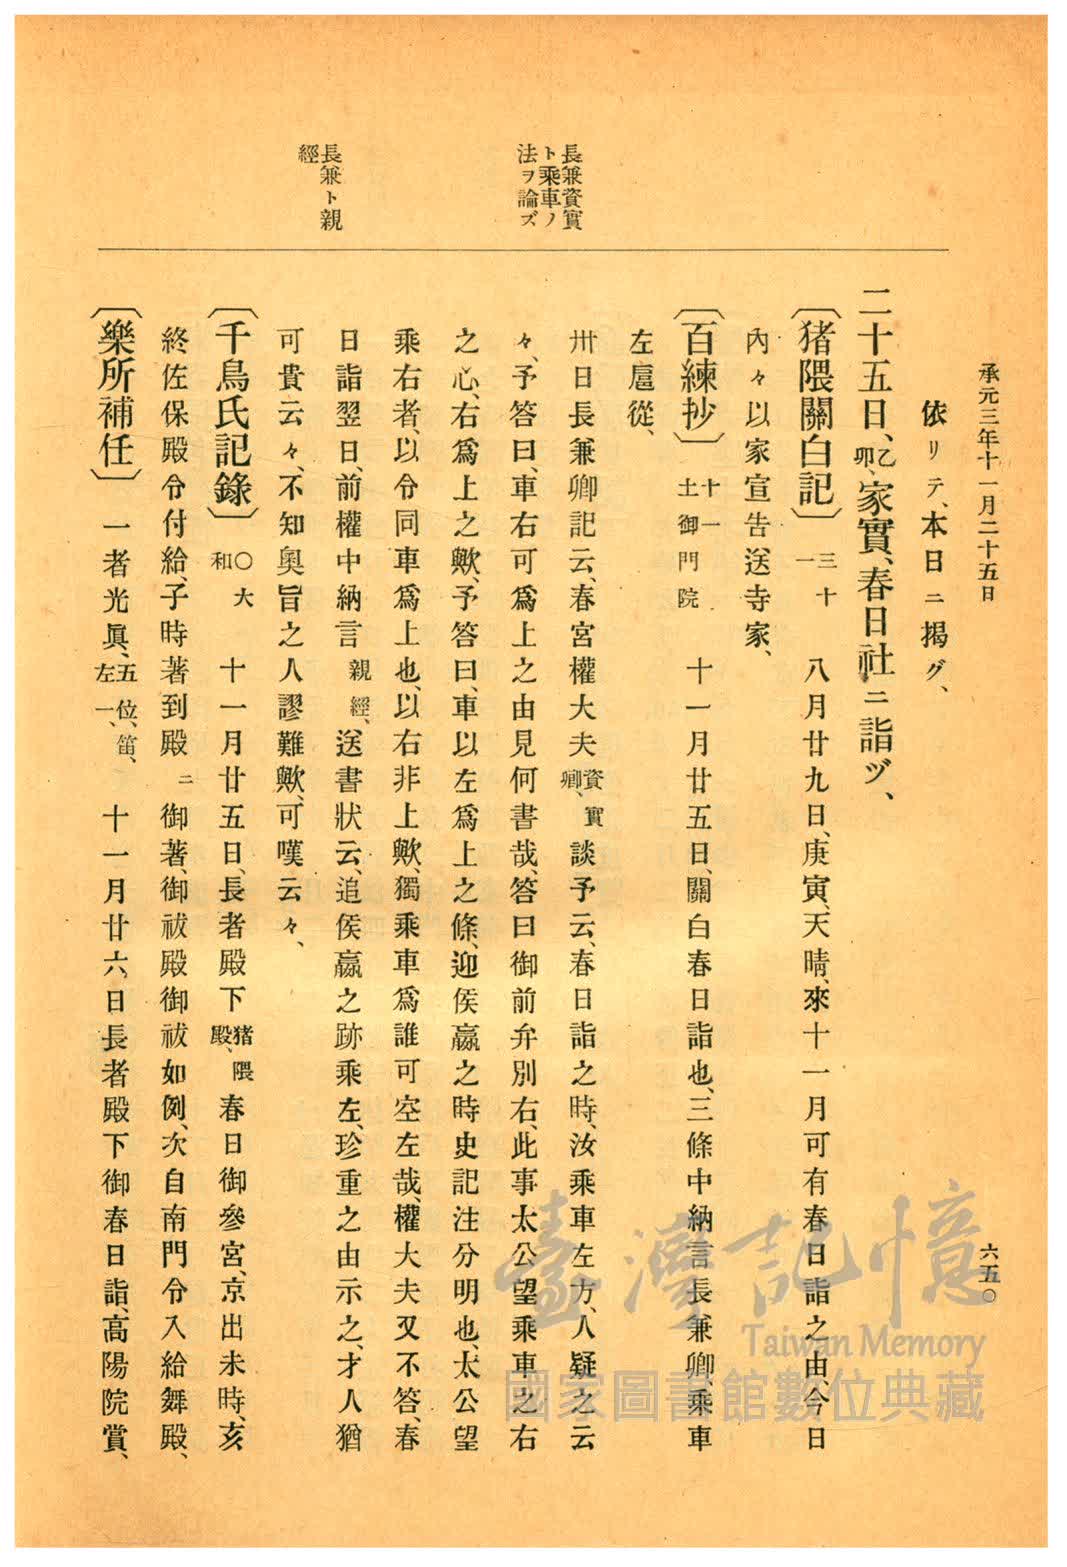 承元三年十一月二十五日
六五〇
長兼資實
ト乘車ノ
法ヲ論ズ
長兼ト親
經
依リテ、本日ニ揭グ、
二十五日、乙卯、家實、春日社ニ詣ヅ、
〔猪隈關白記〕三十一 八月廿九日、庚寅、天晴、來十一月可有春日詣之由、今日
內々以家宣告送寺家、
〔百練抄〕十一土御門院 十一月廿五日、關白春日詣也、三條中納言長兼卿、乘車
左扈從、
卅日長兼卿記云、春宮權大夫資實卿、談予云、春日詣之時、汝乘車左方、人疑之云
々、予答曰、車右可爲上之由見何書哉、答曰御前弁別右、此事太公望乘車之右
之心、右爲上之歟、予答曰、車以左爲上之條、迎侯嬴之時史記注分明也、太公望
乘右者、以令同車爲上也、以右非上歟、獨乘車爲誰可空左哉、權大夫又不答、春
日詣翌日、前權中納言親經、送書狀云、追侯嬴之跡乘左、珍重之由示之、才人猶
可貴云々、不知奧旨之人謬難歟、可嘆云々、
〔千鳥氏記錄〕〇大和 十一月廿五日、長者殿下猪隈殿、春日御參宮、京出未時、亥
終佐保殿令付給、子時著到殿ニ御著、御祓殿御祓如例、次自南門令入給舞殿、
〔樂所補任〕一者光眞、五位、笛、左一、 十一月廿六日長者殿下御春日詣、高陽院賞、
臺灣記憶
Taiwan Memory
國家圖書館數位典藏